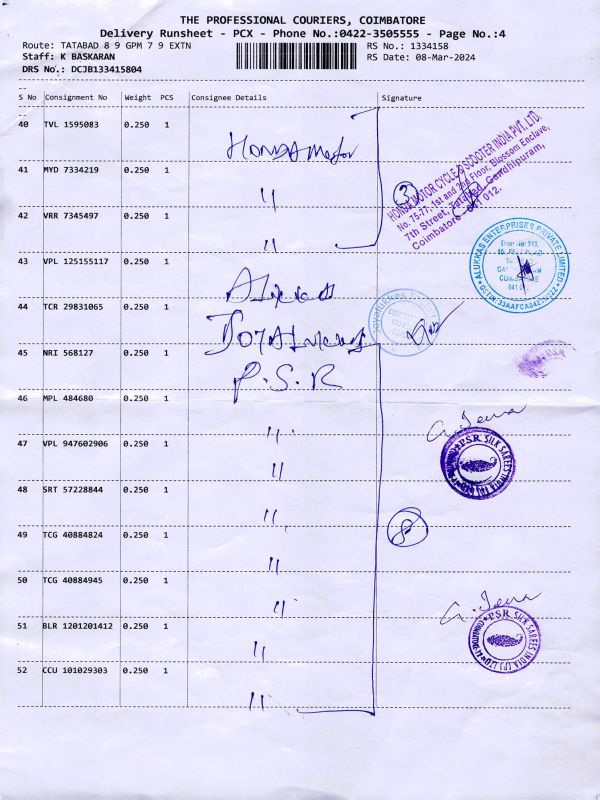 THE PROFESSIONAL COURIERS, COIMBATORE
Delivery Runsheet - PCX - Phone No.:0422-3505555 - Page No.:4
Route: TATABAD 8 9 GPM 7 9 EXTN RS No.: 1334158
Staff: K BASKARAN RS Date: 08-Mar-2024
DRS No.: DCJB133415804
S No Consignment No Weight PCS Consignee Details Signature
40 TVL 1595083 0.250 1 Honda Motor
41 MYD 7334219 0.250 1 "
3
HONDA MOTOR CYCLE & SCOOTER INDIA PVT. LTD.
No. 75-77, 1st and 2nd Floor, Blossom Enclave,
7th Street, Tatabad, Gandhipuram,
Coimbatore - 641 012.
42 VRR 7345497 0.250 1 "
43 VPL 125155117 0.250 1 Alukkas
ALUKKAS ENTERPRISES PRIVATE LIMITED
44 TCR 29831065 0.250 1 Joyalukkas
joyalukkas
45 NRI 568127 0.250 1 P.S.R
46 MPL 484680 0.250 1 "
G. Jena
47 VPL 947602906 0.250 1 "
PSR SILK SAREES INDIA (P) LTD
48 SRT 57228844 0.250 1 "
8
49 TCG 40884824 0.250 1 "
50 TCG 40884945 0.250 1 "
G. Jena
51 BLR 1201201412 0.250 1 "
PSR SILK SAREES INDIA (P) LTD
52 CCU 101029303 0.250 1 "